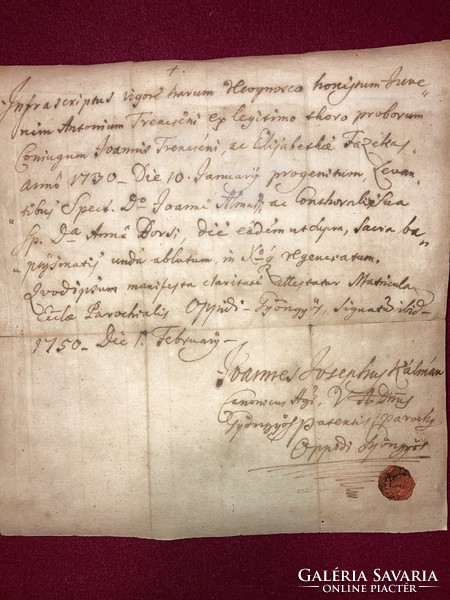 †
Infrascriptus vigore harum recognosco honestum Juve„
nem Antonium Trencséni ex legitimo thoro proborum
Conjugum Joannis Trencséni, ac Elisabethæ Fazékas,
Anno 1730– Die 10. Januarÿ progenitum Levan„
„tibus Spect. Do. Joanni Almasi, ac Consorali Sua
Sp. Da Anna Borsi, die eadem ut supra, Sacra ba„
„ptismatis unda ablutum, in regeneratum.
Quod ipsum manifesta claritate attestatur Matricula
Ecclæ Parochialis Oppidi Gyöngÿös, Signatũ ibid–
1750– Die 1. Februarÿ–
Joannes Josephus Kálmán
Canonicus V. A. Dnus
Gyöngÿös Patensis, Paroch9
Oppidi Gyöngÿös
GALÉRIA SAVARIA
ONLINE PIACTÉR